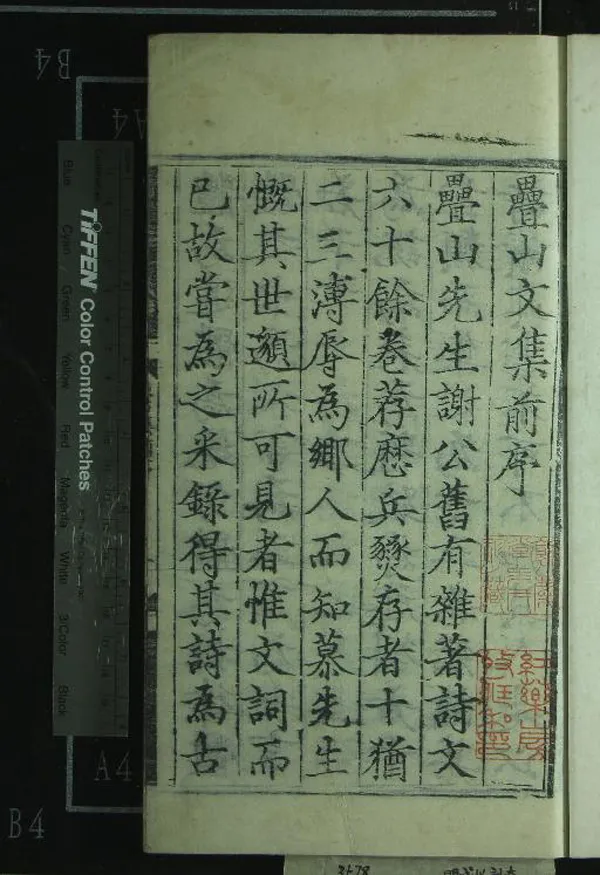 疊山文集前序
疊山先生謝公舊有雜著詩文
六十餘卷荐歷兵燹存者十猶
二三溥辱為鄉人而知慕先生
慨其世邈所可見者惟文詞而
已故嘗為之采錄得其詩為古
TIFFEN Color Control Patches
Blue
Cyan
Green
Yellow
Red
Magenta
White
3/Color
Black
B4
A4
A4
B4